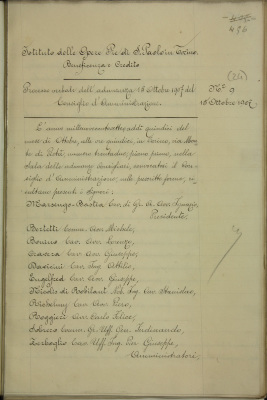 434
Istituto delle Opere Pie di S. Paolo in Torino.
Beneficenza e Credito
Processo verbale dell'adunanza 15 Ottobre 1907 del
Consiglio d'Amministrazione.
Nº 9
15 Ottobre 1907
L'anno millenovecentosette addì quindici del
mese di Ottobre, alle ore quindici, in Torino, via Monte
di Pietà, numero trentadue, piano primo, nella
sala delle adunanze consigliari, convocatosi il Con-
siglio d'Amministrazione, nelle prescritte forme, ri-
sultano presenti i Signori:
Marsengo-Bastia Cav. di Gr. Cr. Avv. Ignazio,
Presidente
Berlatti Comm. Avv. Michele,
Bonino Cav. Avv. Lorenzo,
Casara Cav. Avv. Giuseppe,
Cav. Ing. Attilio,
Cav. Avv. Giuseppe,
Nicolis di Robilant Nob. Ing. Cav. Stanislao,
Cav. Avv. Piero,
Reggieri Cav. Carlo Felice,
Comm. Gr. Uff. Avv. Ferdinando,
Zerboglio Cav. Uff. Ing. Giuseppe,
Amministratori,